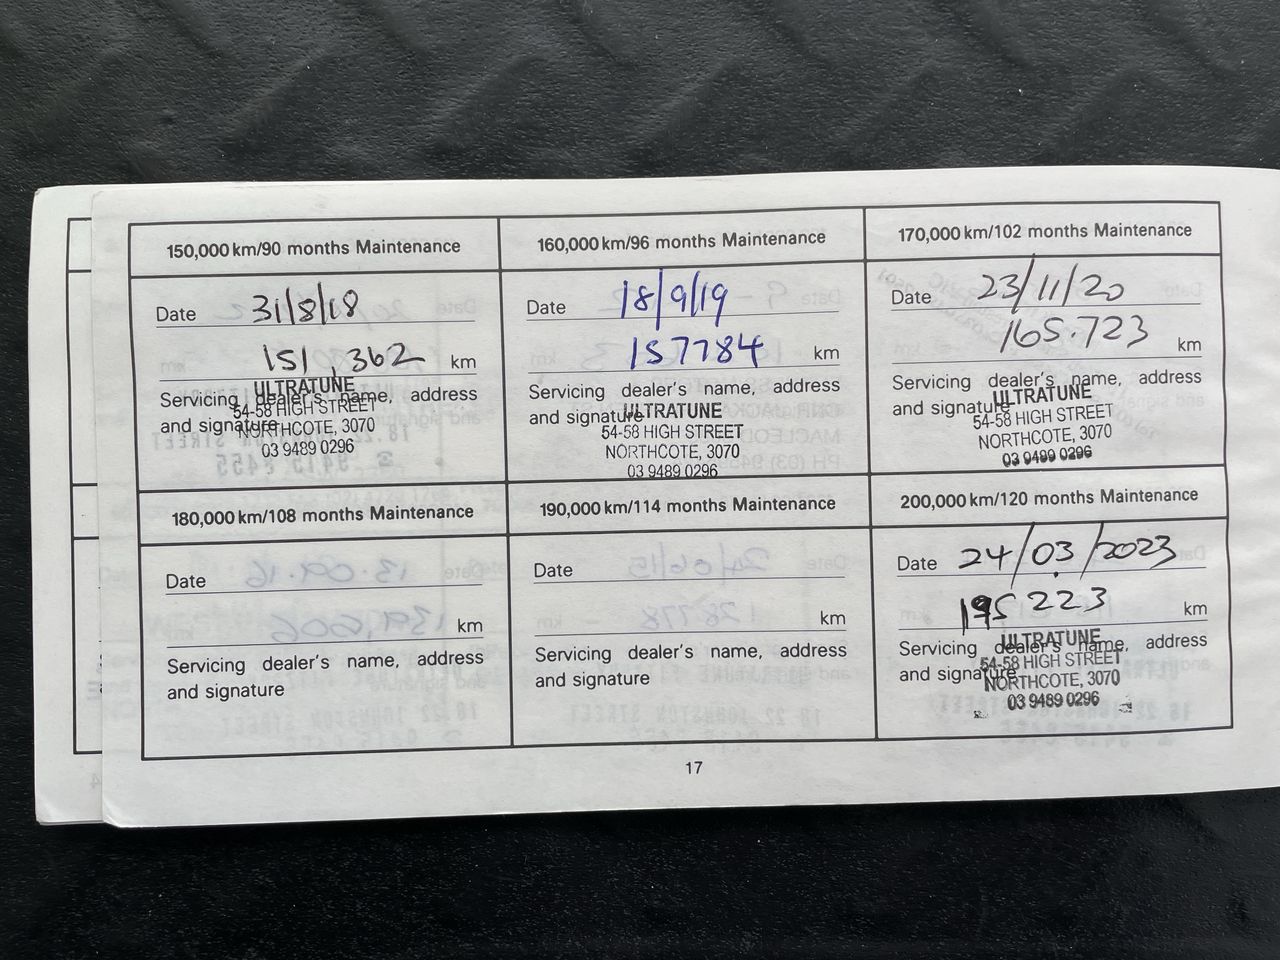 150,000 km/90 months Maintenance
Date 31/8/18
151,362 km
Servicing dealer's name, address
and signature
ULTRATUNE
54-58 HIGH STREET
NORTHCOTE, 3070
03 9489 0296
160,000 km/96 months Maintenance
Date 18/9/19
157784 km
Servicing dealer's name, address
and signature
ULTRATUNE
54-58 HIGH STREET
NORTHCOTE, 3070
03 9489 0296
170,000 km/102 months Maintenance
Date 23/11/20
165.723 km
Servicing dealer's name, address
and signature
ULTRATUNE
54-58 HIGH STREET
NORTHCOTE, 3070
03 9489 0296
180,000 km/108 months Maintenance
Date
km
Servicing dealer's name, address
and signature
190,000 km/114 months Maintenance
Date
km
Servicing dealer's name, address
and signature
200,000 km/120 months Maintenance
Date 24/03/2023
195223 km
Servicing dealer's name, address
and signature
ULTRATUNE
54-58 HIGH STREET
NORTHCOTE, 3070
03 9489 0296
17